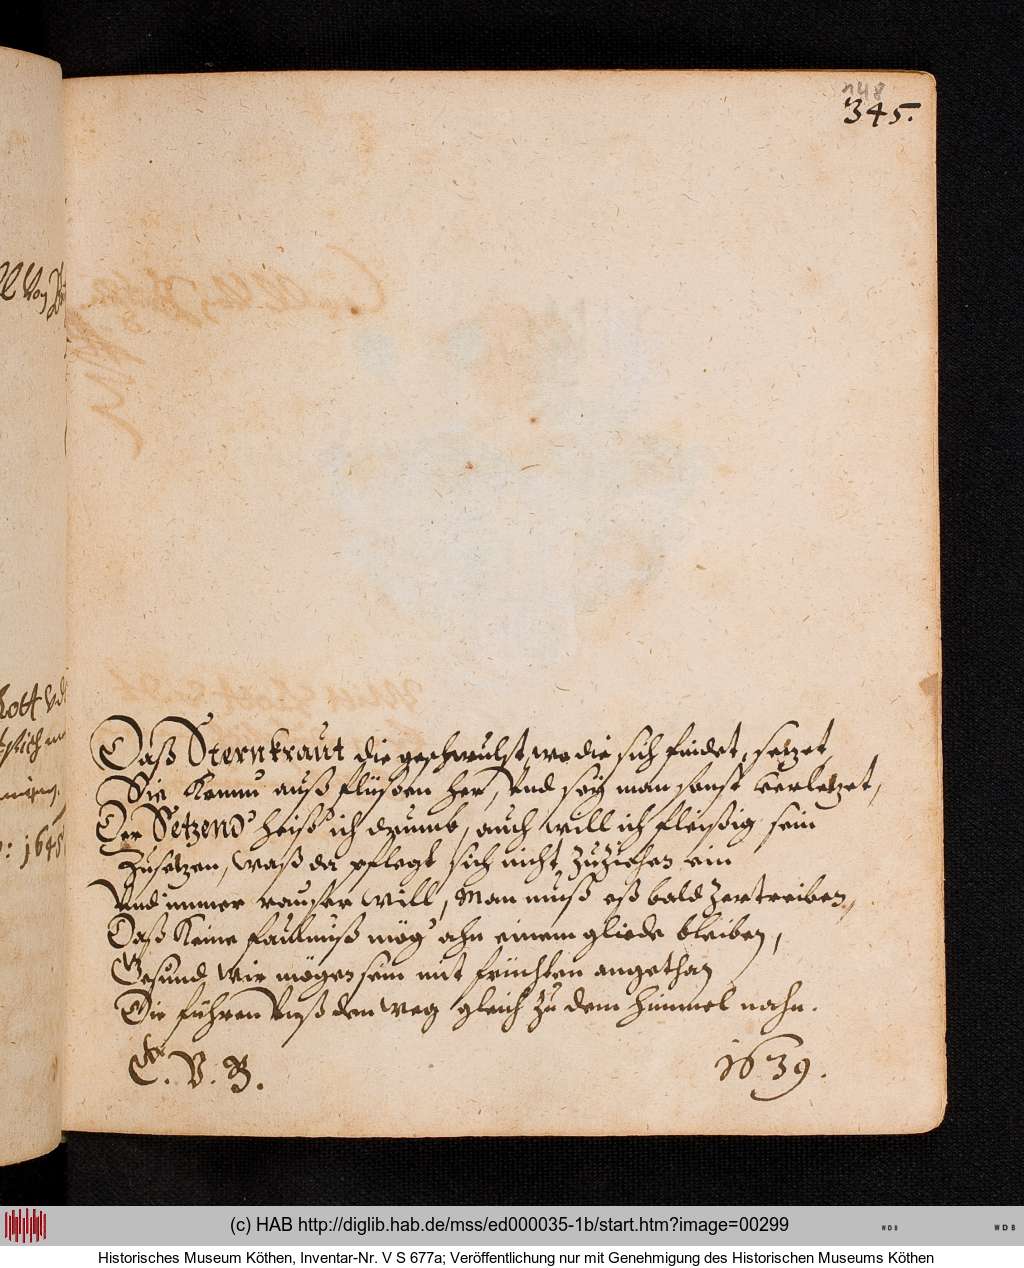 148
345.
Daß Sternkraut die geschwulst, wo die sich findet, setzet,
Sie komm auß flüßen her, Und so man sonst verletzet,
Der Setzend' heiß' ich drumb, auch will ich fleißig sein
Zusetzen, waß da pflegt sich nicht zuziehen ein
Und immer rauser will, Man muß eß bald zertreiben,
Daß keine faulnuß mög' ahn einem gliede bleiben,
Gesund wir mögen sein mit früchten angethan
Die führen Unß den weg gleich zu dem himmel nahn.
C. V. B.
1639.
: 1648
(c) HAB http://diglib.hab.de/mss/ed000035-1b/start.htm?image=00299
WDB
WDB
Historisches Museum Köthen, Inventar-Nr. V S 677a; Veröffentlichung nur mit Genehmigung des Historischen Museums Köthen